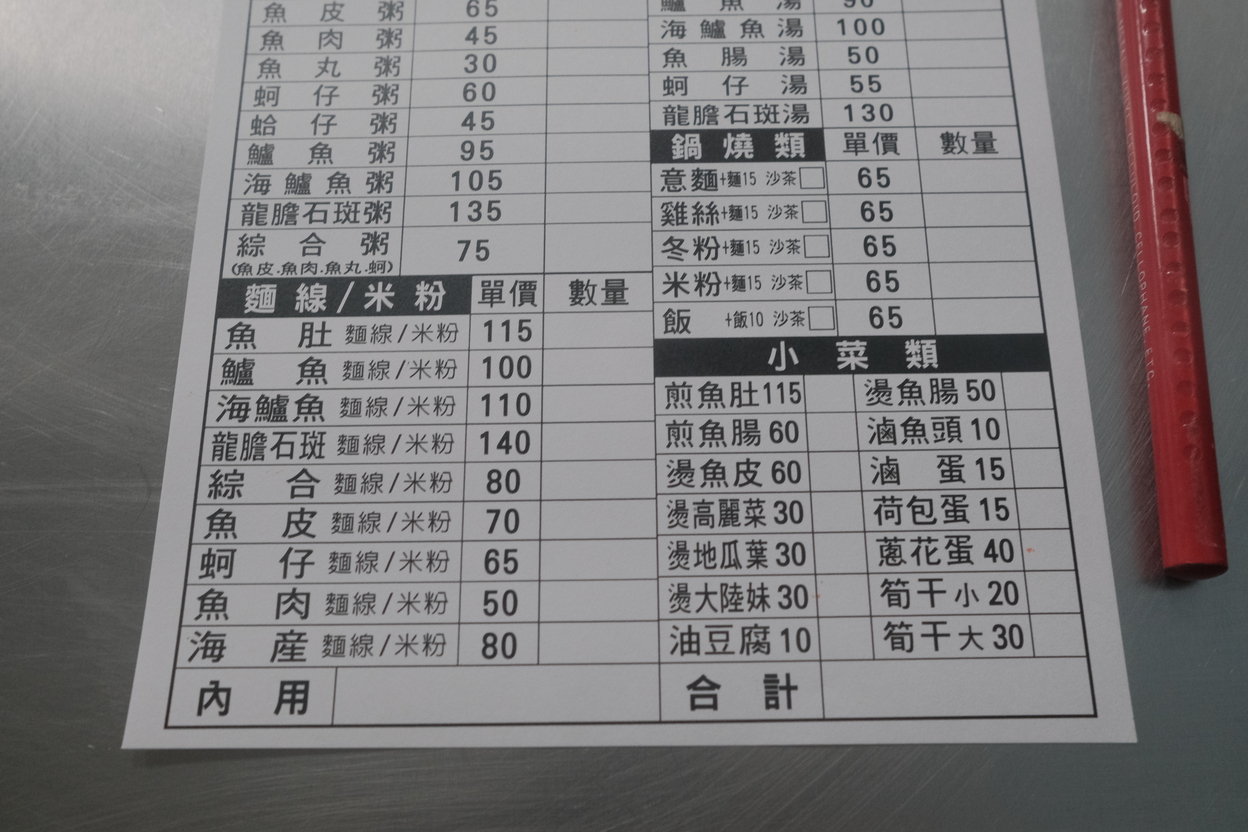 魚皮粥 65
魚肉粥 45
魚丸粥 30
蚵仔粥 60
蛤仔粥 45
鱸魚粥 95
海鱸魚粥 105
龍膽石斑粥 135
綜合粥 75
(魚皮.魚肉.魚丸.蚵)
麵線/米粉 單價 數量
魚肚 麵線/米粉 115
鱸魚 麵線/米粉 100
海鱸魚 麵線/米粉 110
龍膽石斑 麵線/米粉 140
綜合 麵線/米粉 80
魚皮 麵線/米粉 70
蚵仔 麵線/米粉 65
魚肉 麵線/米粉 50
海產 麵線/米粉 80
內用
鱸魚湯 90
海鱸魚湯 100
魚腸湯 50
蚵仔湯 55
龍膽石斑湯 130
鍋燒類 單價 數量
意麵+麵15 沙茶 65
雞絲+麵15 沙茶 65
冬粉+麵15 沙茶 65
米粉+麵15 沙茶 65
飯 +飯10 沙茶 65
小菜類
煎魚肚115 燙魚腸50
煎魚腸60 滷魚頭10
燙魚皮60 滷蛋15
燙高麗菜30 荷包蛋15
燙地瓜葉30 蔥花蛋40
燙大陸妹30 筍干小20
油豆腐10 筍干大30
合計